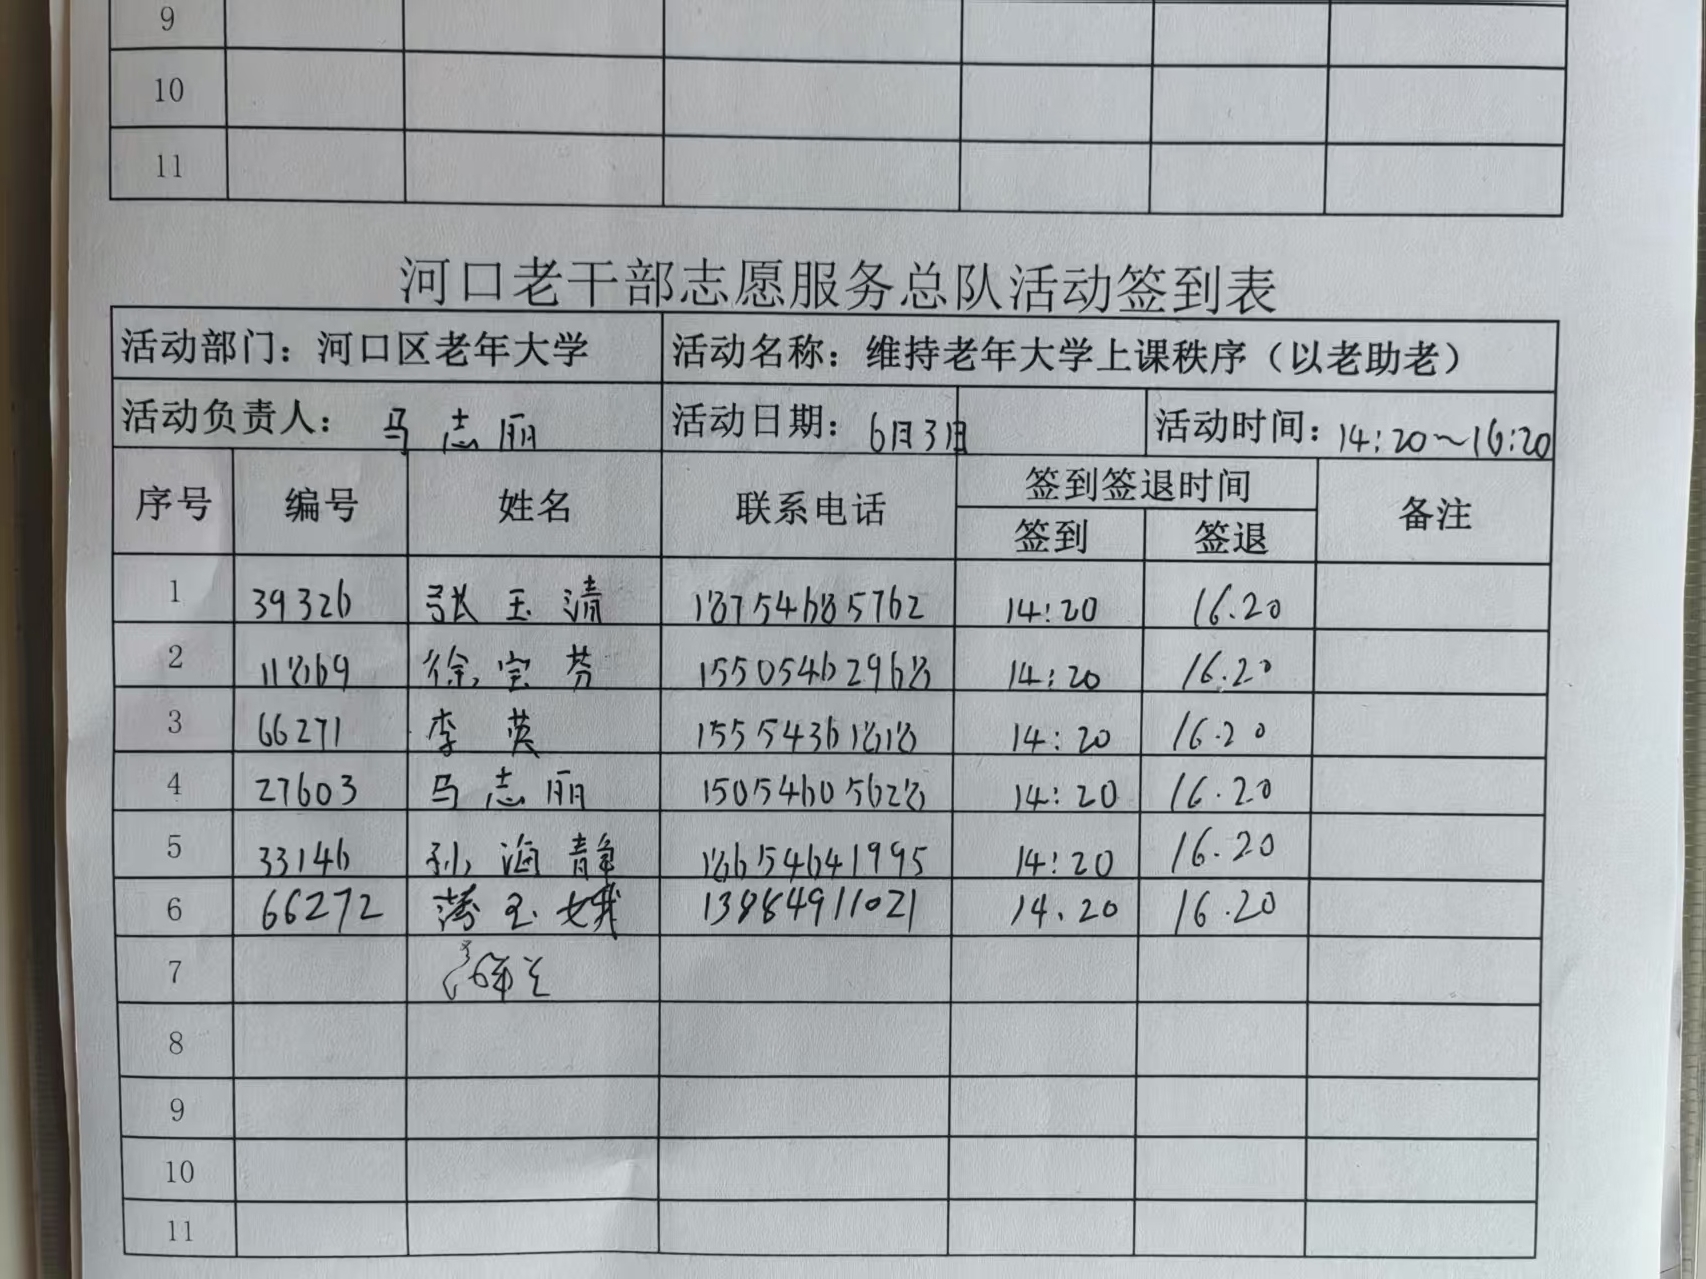 9
10
11
河口老干部志愿服务总队活动签到表
活动部门：河口区老年大学 活动名称：维持老年大学上课秩序（以老助老）
活动负责人：马志丽 活动日期：6月3日 活动时间：14:20～16:20
序号 编号 姓名 联系电话 签到签退时间 备注
签到 签退
1 39326 张玉清 18754685762 14:20 16.20
2 11869 徐宝芬 15505462968 14:20 16.20
3 66271 李英 15554361818 14:20 16.20
4 27603 马志丽 15054605628 14:20 16.20
5 33146 孙海静 18654641995 14:20 16.20
6 66272 蒋玉娥 13884911021 14.20 16.20
7
8
9
10
11